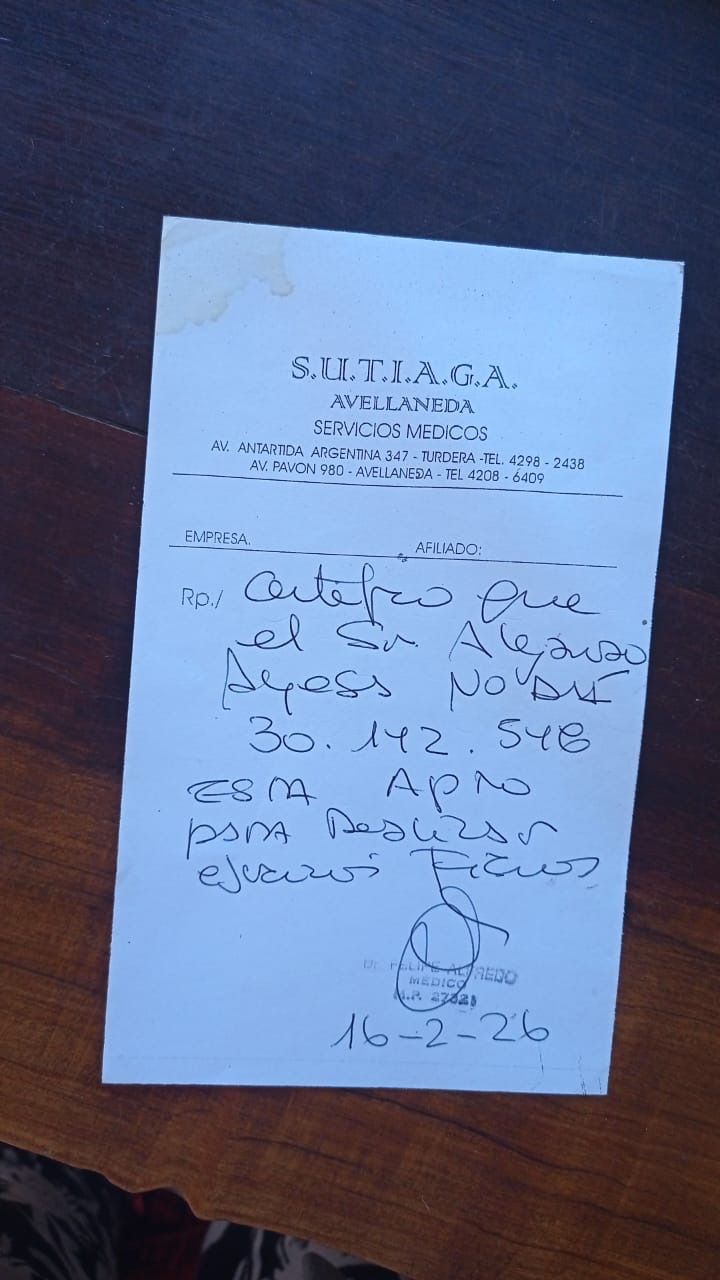 S.U.T.I.A.G.A.
AVELLANEDA
SERVICIOS MEDICOS
AV. ANTARTIDA ARGENTINA 347 - TURDERA -TEL. 4298 - 2438
AV. PAVON 980 - AVELLANEDA - TEL 4208 - 6409
EMPRESA. AFILIADO:
Rp./ Certifico que
el Sr. Alejandro
DNI
30.142.546
ESTA APTO
para Realizar
ejercicios Fisicos
Dr. FELIPE ALFREDO
MEDICO
M.P.
16-2-26